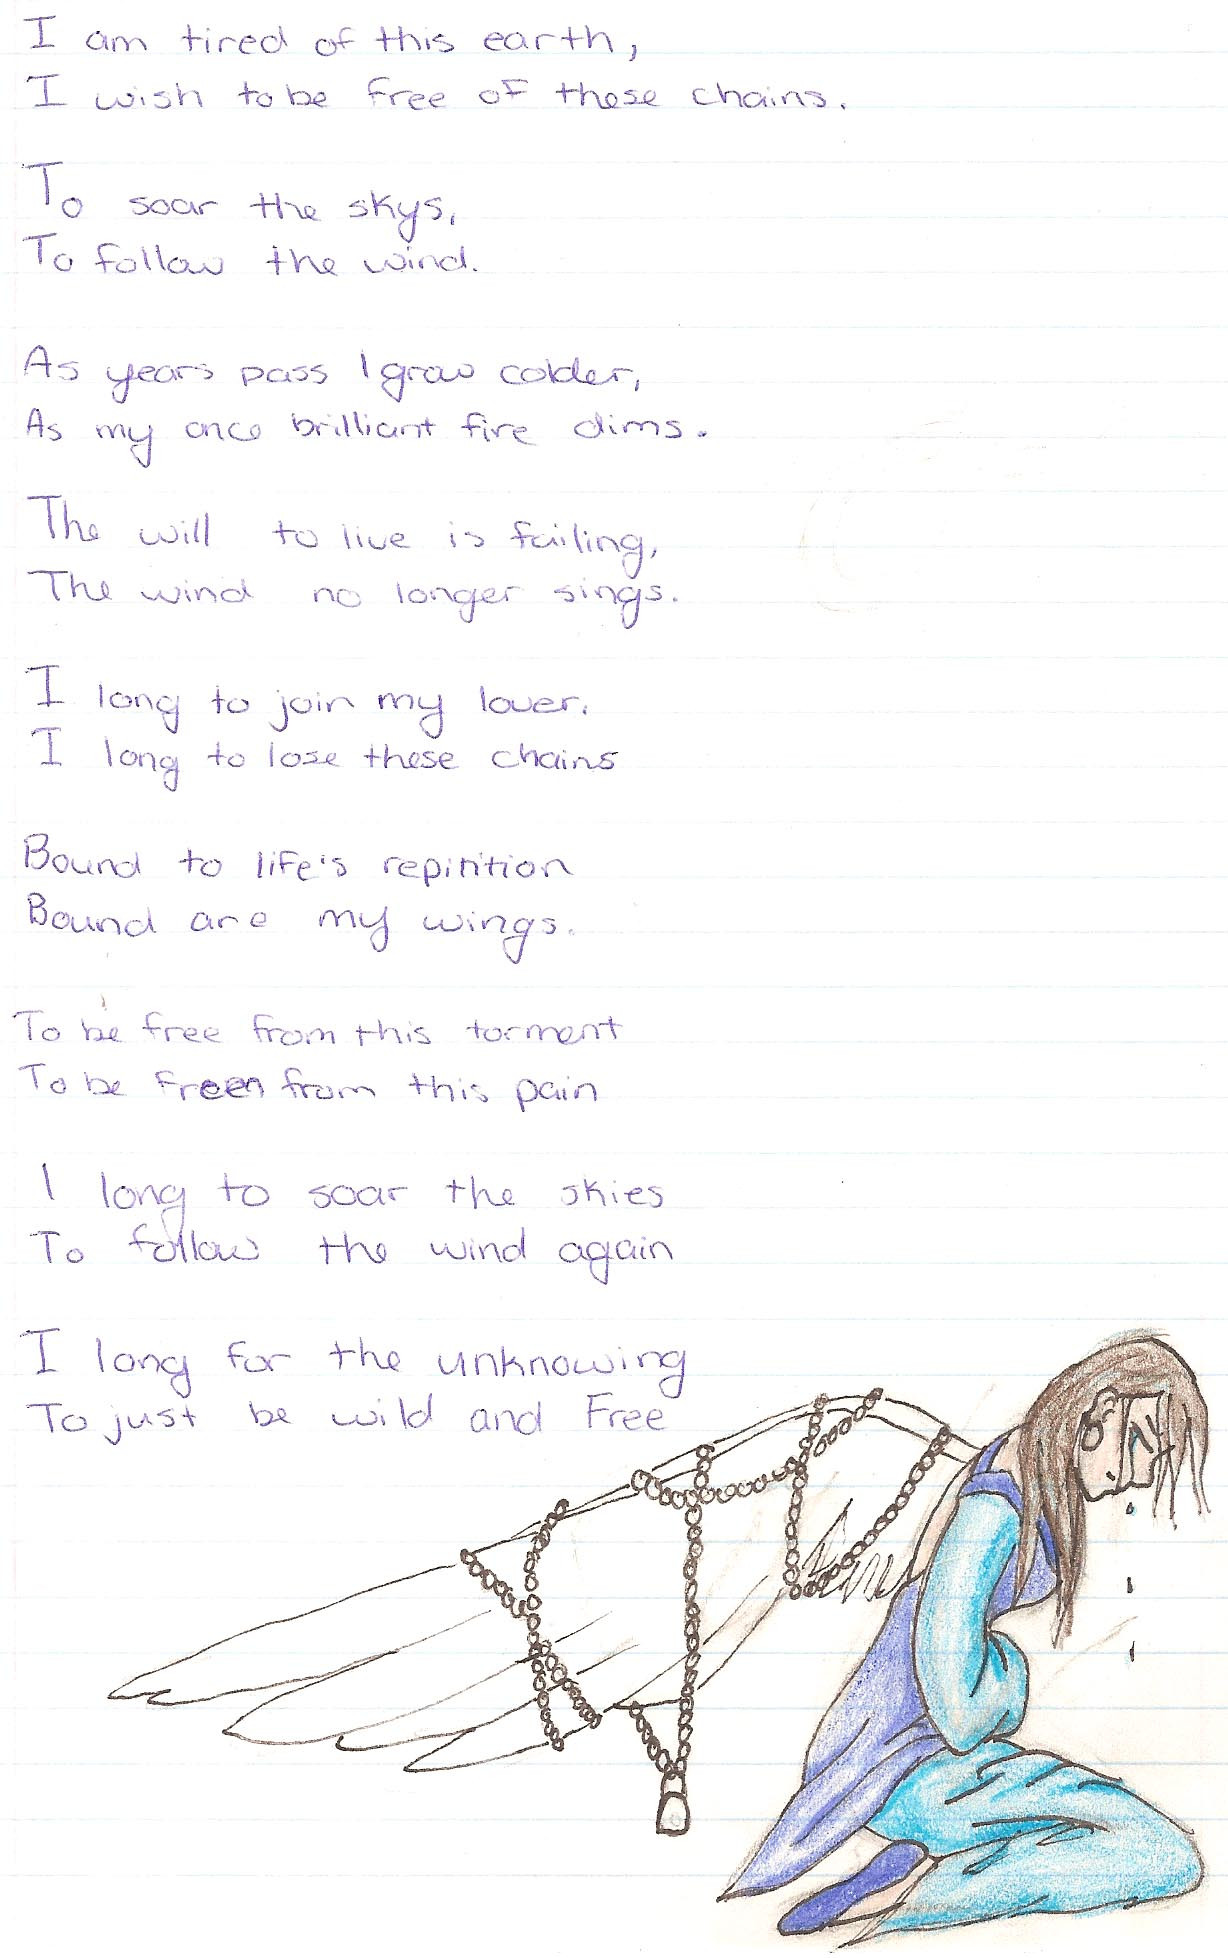 I am tired of this earth,
I wish to be free of these chains.
To soar the skys,
To follow the wind.
As years pass I grow colder,
As my once brilliant fire dims.
The will to live is failing,
The wind no longer sings.
I long to join my lover.
I long to lose these chains
Bound to life's repitition
Bound are my wings.
To be free from this torment
To be freen from this pain
I long to soar the skies
To follow the wind again
I long for the unknowing
To just be wild and Free